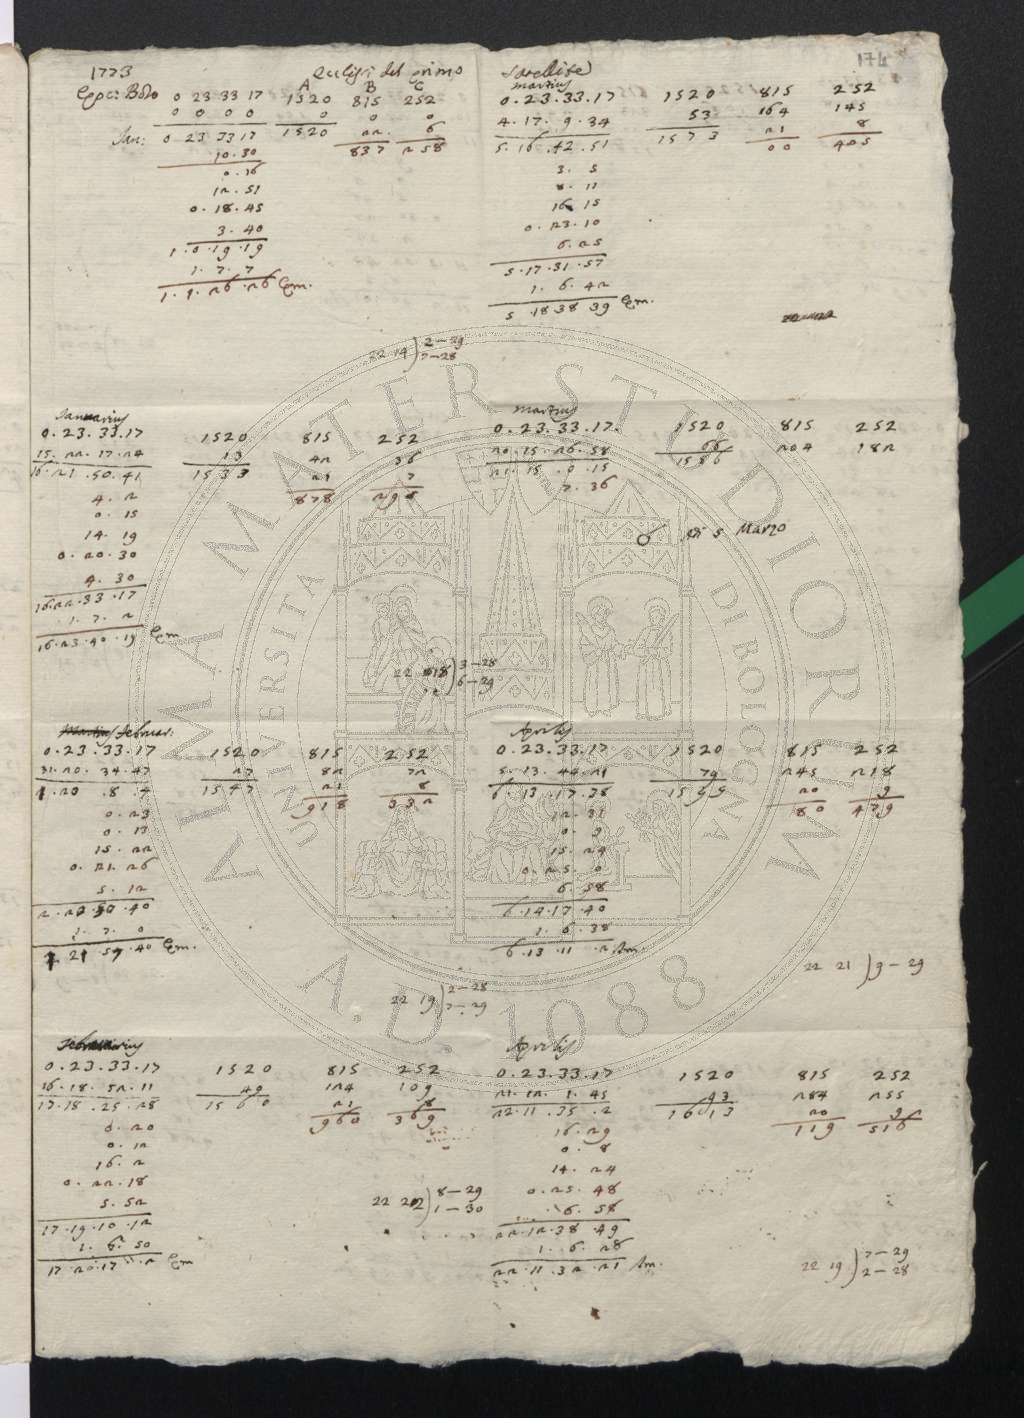 1773 Eclissi del primo Satellite
174
A B C
Epoc: Bono 0 23 33 17 1520 815 252
0 0 0 0 0 0 0
Jan: 0 23 33 17 1520 22 6
10.30 837 258
0.16
12.51
0.18.45
3.40
1.0.19.19
1.7.7
1.1.26.26 Em.
martius
0.23.33.17 1520 815 252
4.17.9.34 53 164 145
5.16.42.51 1573 21 8
3.5 00 405
8.11
16 15
0.23.10
6.25
5.17.31.57
1.6.42
5.18 38 39 Em.
22 19) 2—29
7—28
Januarius
0.23.33.17 1520 815 252
15.22.17.24 13 42 36
16.21.50.41 1533 21 7
4.2 878 295
0.15
14.19
0.20.30
4.30
16.22.33.17
1.7.2
16.23.40.19 Em
martius
0.23.33.17. 1520 815 252
20.15.26.58 66 204 182
21.15.0.15 1586
7.36
di 5 Marzo
22 18) 3—28
6—29
Februar.
0.23.33.17 1520 815 252
31.20.34.47 27 82 72
1.20.8.4 1547 21 8
0.23 918 332
0.13
15.22
0.21.26
5.12
2.22 50.40
1.7.0
21.57.40 Em.
Aprilis
0.23.33.17 1520 815 252
5.13.44.21 79 245 218
6.13.17.38 1599 20 9
12.31 80 479
0.9
15.24
0.25 0
6.58
6.14.17.40
1.6.38
6.13.11.2 Im.
22 21) 9—29
22 19) 2—28
7—29
Februarius
0.23.33.17 1520 815 252
16.18.52.11 49 124 109
17.18.25.28 1560 21 8
0.20 960 369
0.12
16.2
0.22.18
5.52
17.19.10.12
1.6.50
17.20.17.2 Em
22 22) 8—29
1—30
Aprilis
0.23.33.17 1520 815 252
21.12.1.45 93 284 255
22.11.35.2 1613 20 9
16.29 119 516
0.8
14.24
0.25.48
6.58
22.12.38.49
1.6.28
22.11.32.21 Im.
22 19) 7—29
2—28
ALMA MATER STUDIORUM
A.D. 1088
UNIVERSITÀ DI BOLOGNA